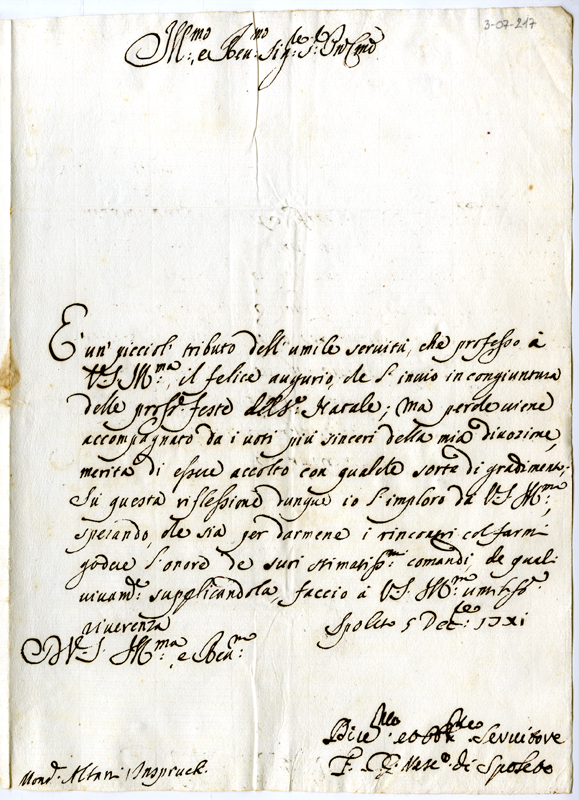 3-07-217
Ill.mo e Rev.mo Sig.re Sig.re P.ron Col.mo
E' un' picciol' tributo dell' umile servitù, che professo à
V.S. Ill.ma, il felice augurio, che l' invio in congiuntura
delle pross.e feste del S.o Natale; Ma perche viene
accompagnato da i voti più sinceri della mia divozione,
merita di essere accolto con qualche sorte di gradiment.o
Sù questa riflessione dunque io l' imploro da V.S. Ill.ma,
sperando, che sia per darmene i rincontri col farmi
godere l' onore de suoi stimatiss.mi comandi, de quali
vivam.e supplicandola, faccio à V.S. Ill.ma umiliss.a
riverenza
Spoleto 5 Dec.re 17xi
D V.S. Ill.ma, e Rev.ma
Div.mo ed Obb.mo Servitore
Vesc.o di Spoleto
Mons.r Altani Inspruck.